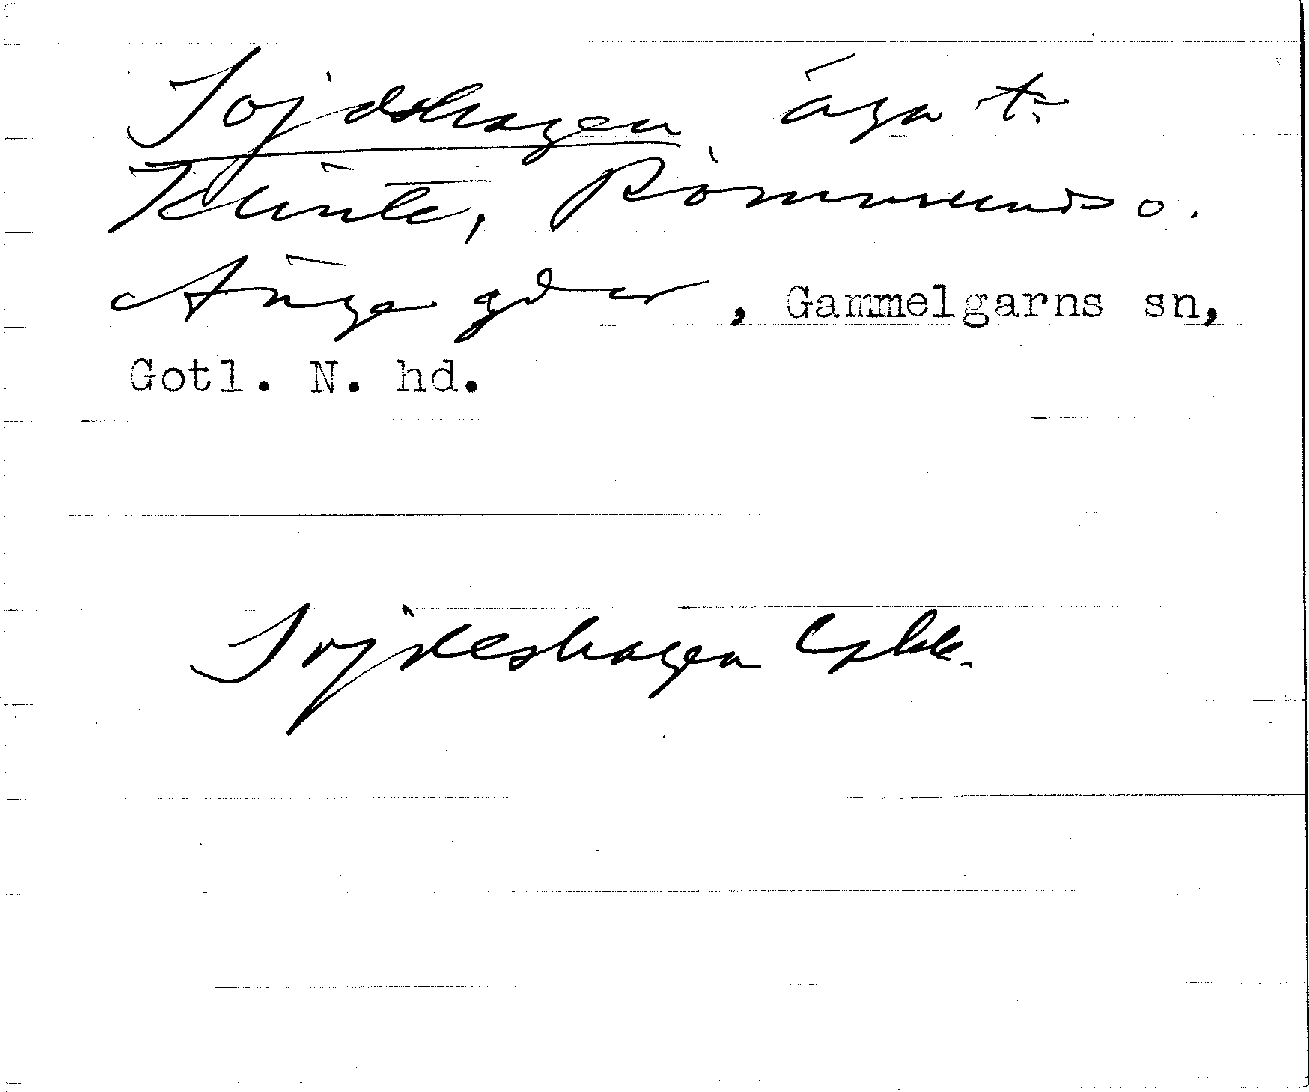 Sojdshagen äga t.
Klinte, Rommunds o.
Änge gdar, Gammelgarns sn,
Gotl. N. hd.
Sojdeshagen